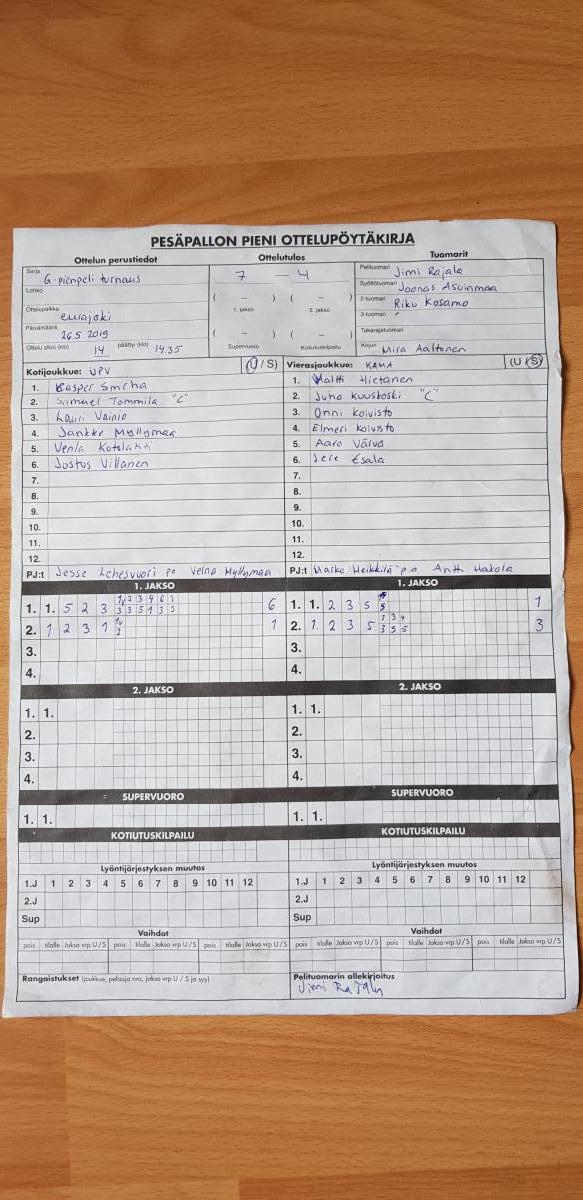 PESÄPALLON PIENI OTTELUPÖYTÄKIRJA
Ottelun perustiedot
Sarja G-pienpeli turnaus
Lohko
Ottelupaikka eurajoki
Päivämäärä 26.5 2019
Ottelu alkoi (klo) 14 päättyi (klo) 14.35
Ottelutulos
7 – 4
( – ) ( – )
1. jakso 2. jakso
( – ) ( – )
Supervuoro Kotiutuskilpailu
Tuomarit
Pelituomari Jimi Rajala
Syöttötuomari Joonas Asuinmaa
2-tuomari Riku Kosamo
3-tuomari
Takarajatuomari
Kirjuri Mira Aaltonen
Kotijoukkue: UPV (U / S)
1. Kasper Smrha
2. Samuel Tommila "C"
3. Lauri Vainio
4. Jankke Myllymaa
5. Venla Kotslahti
6. Justus Villanen
7.
8.
9.
10.
11.
12.
PJ:t Jesse Lehesvuori po Velna Myllymaa
Vierasjoukkue: KAMA (U / S)
1. Valtti Hietanen
2. Juho Kuuskoski "C"
3. Onni Koivisto
4. Elmeri Koivisto
5. Aaro Värvä
6. Jere Esala
7.
8.
9.
10.
11.
12.
PJ:t Marko Heikkilä p.o Antti Hakola
1. JAKSO
1. 1. 5 2 3 6
2. 1 2 3 1 1
3.
4.
1. JAKSO
1. 1. 2 3 5 1
2. 1. 2 3 5 3
3.
4.
2. JAKSO
1. 1.
2.
3.
4.
2. JAKSO
1. 1.
2.
3.
4.
SUPERVUORO
1. 1.
SUPERVUORO
1. 1.
KOTIUTUSKILPAILU
KOTIUTUSKILPAILU
Lyöntijärjestyksen muutos
1.J 1 2 3 4 5 6 7 8 9 10 11 12
2.J
Sup
Lyöntijärjestyksen muutos
1.J 1 2 3 4 5 6 7 8 9 10 11 12
2.J
Sup
Vaihdot
pois tilalle Jakso vrp U / S pois tilalle Jakso vrp U / S pois tilalle Jakso vrp U / S
Vaihdot
pois tilalle Jakso vrp U / S pois tilalle Jakso vrp U / S pois tilalle Jakso vrp U / S
Rangaistukset (joukkue, pelaaja nro, jakso vrp U / S ja syy)
Pelituomarin allekirjoitus
Jimi Rajala